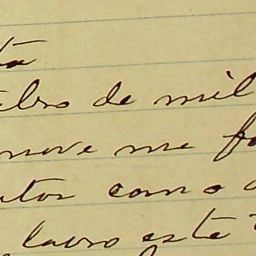 ta
tubro de mil
nove me fo
utos como a
lavro este